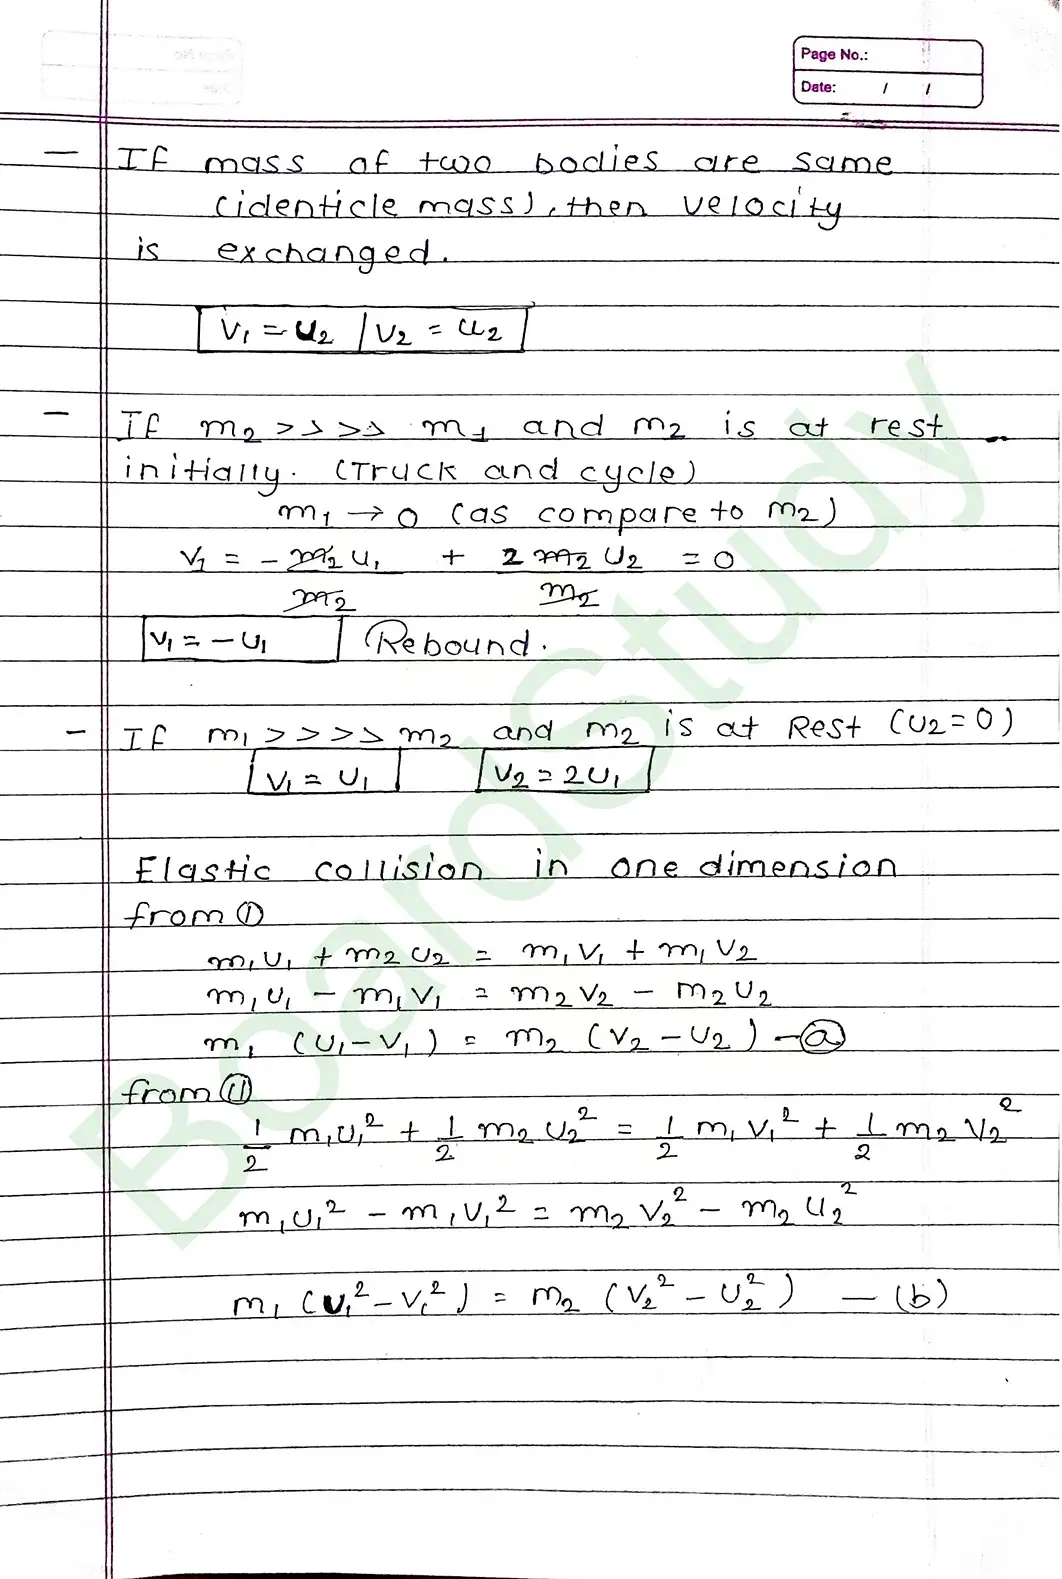 Page No.:
Date: / /
— If mass of two bodies are same
(identicle mass), then velocity
is exchanged.
V₁ = u₂ / V₂ = u₂
— If m₂ >>>> m₁ and m₂ is at rest
initially. (Truck and cycle)
m₁ → 0 (as compare to m₂)
V₁ = - m₂ u₁ / m₂ + 2 m₂ u₂ / m₂ = 0
V₁ = - u₁ Rebound.
- If m₁ >>>> m₂ and m₂ is at Rest (u₂ = 0)
V₁ = u₁ V₂ = 2u₁
Elastic collision in one dimension
from ①
m₁u₁ + m₂u₂ = m₁v₁ + m₁v₂
m₁u₁ - m₁v₁ = m₂v₂ - m₂u₂
m₁ (u₁ - v₁) = m₂ (v₂ - u₂) - ⓐ
from ⑪
1/2 m₁u₁² + 1/2 m₂u₂² = 1/2 m₁v₁² + 1/2 m₂v₂²
m₁u₁² - m₁v₁² = m₂v₂² - m₂u₂²
m₁ (u₁² - v₁²) = m₂ (v₂² - u₂²) — (b)
BoardStudy